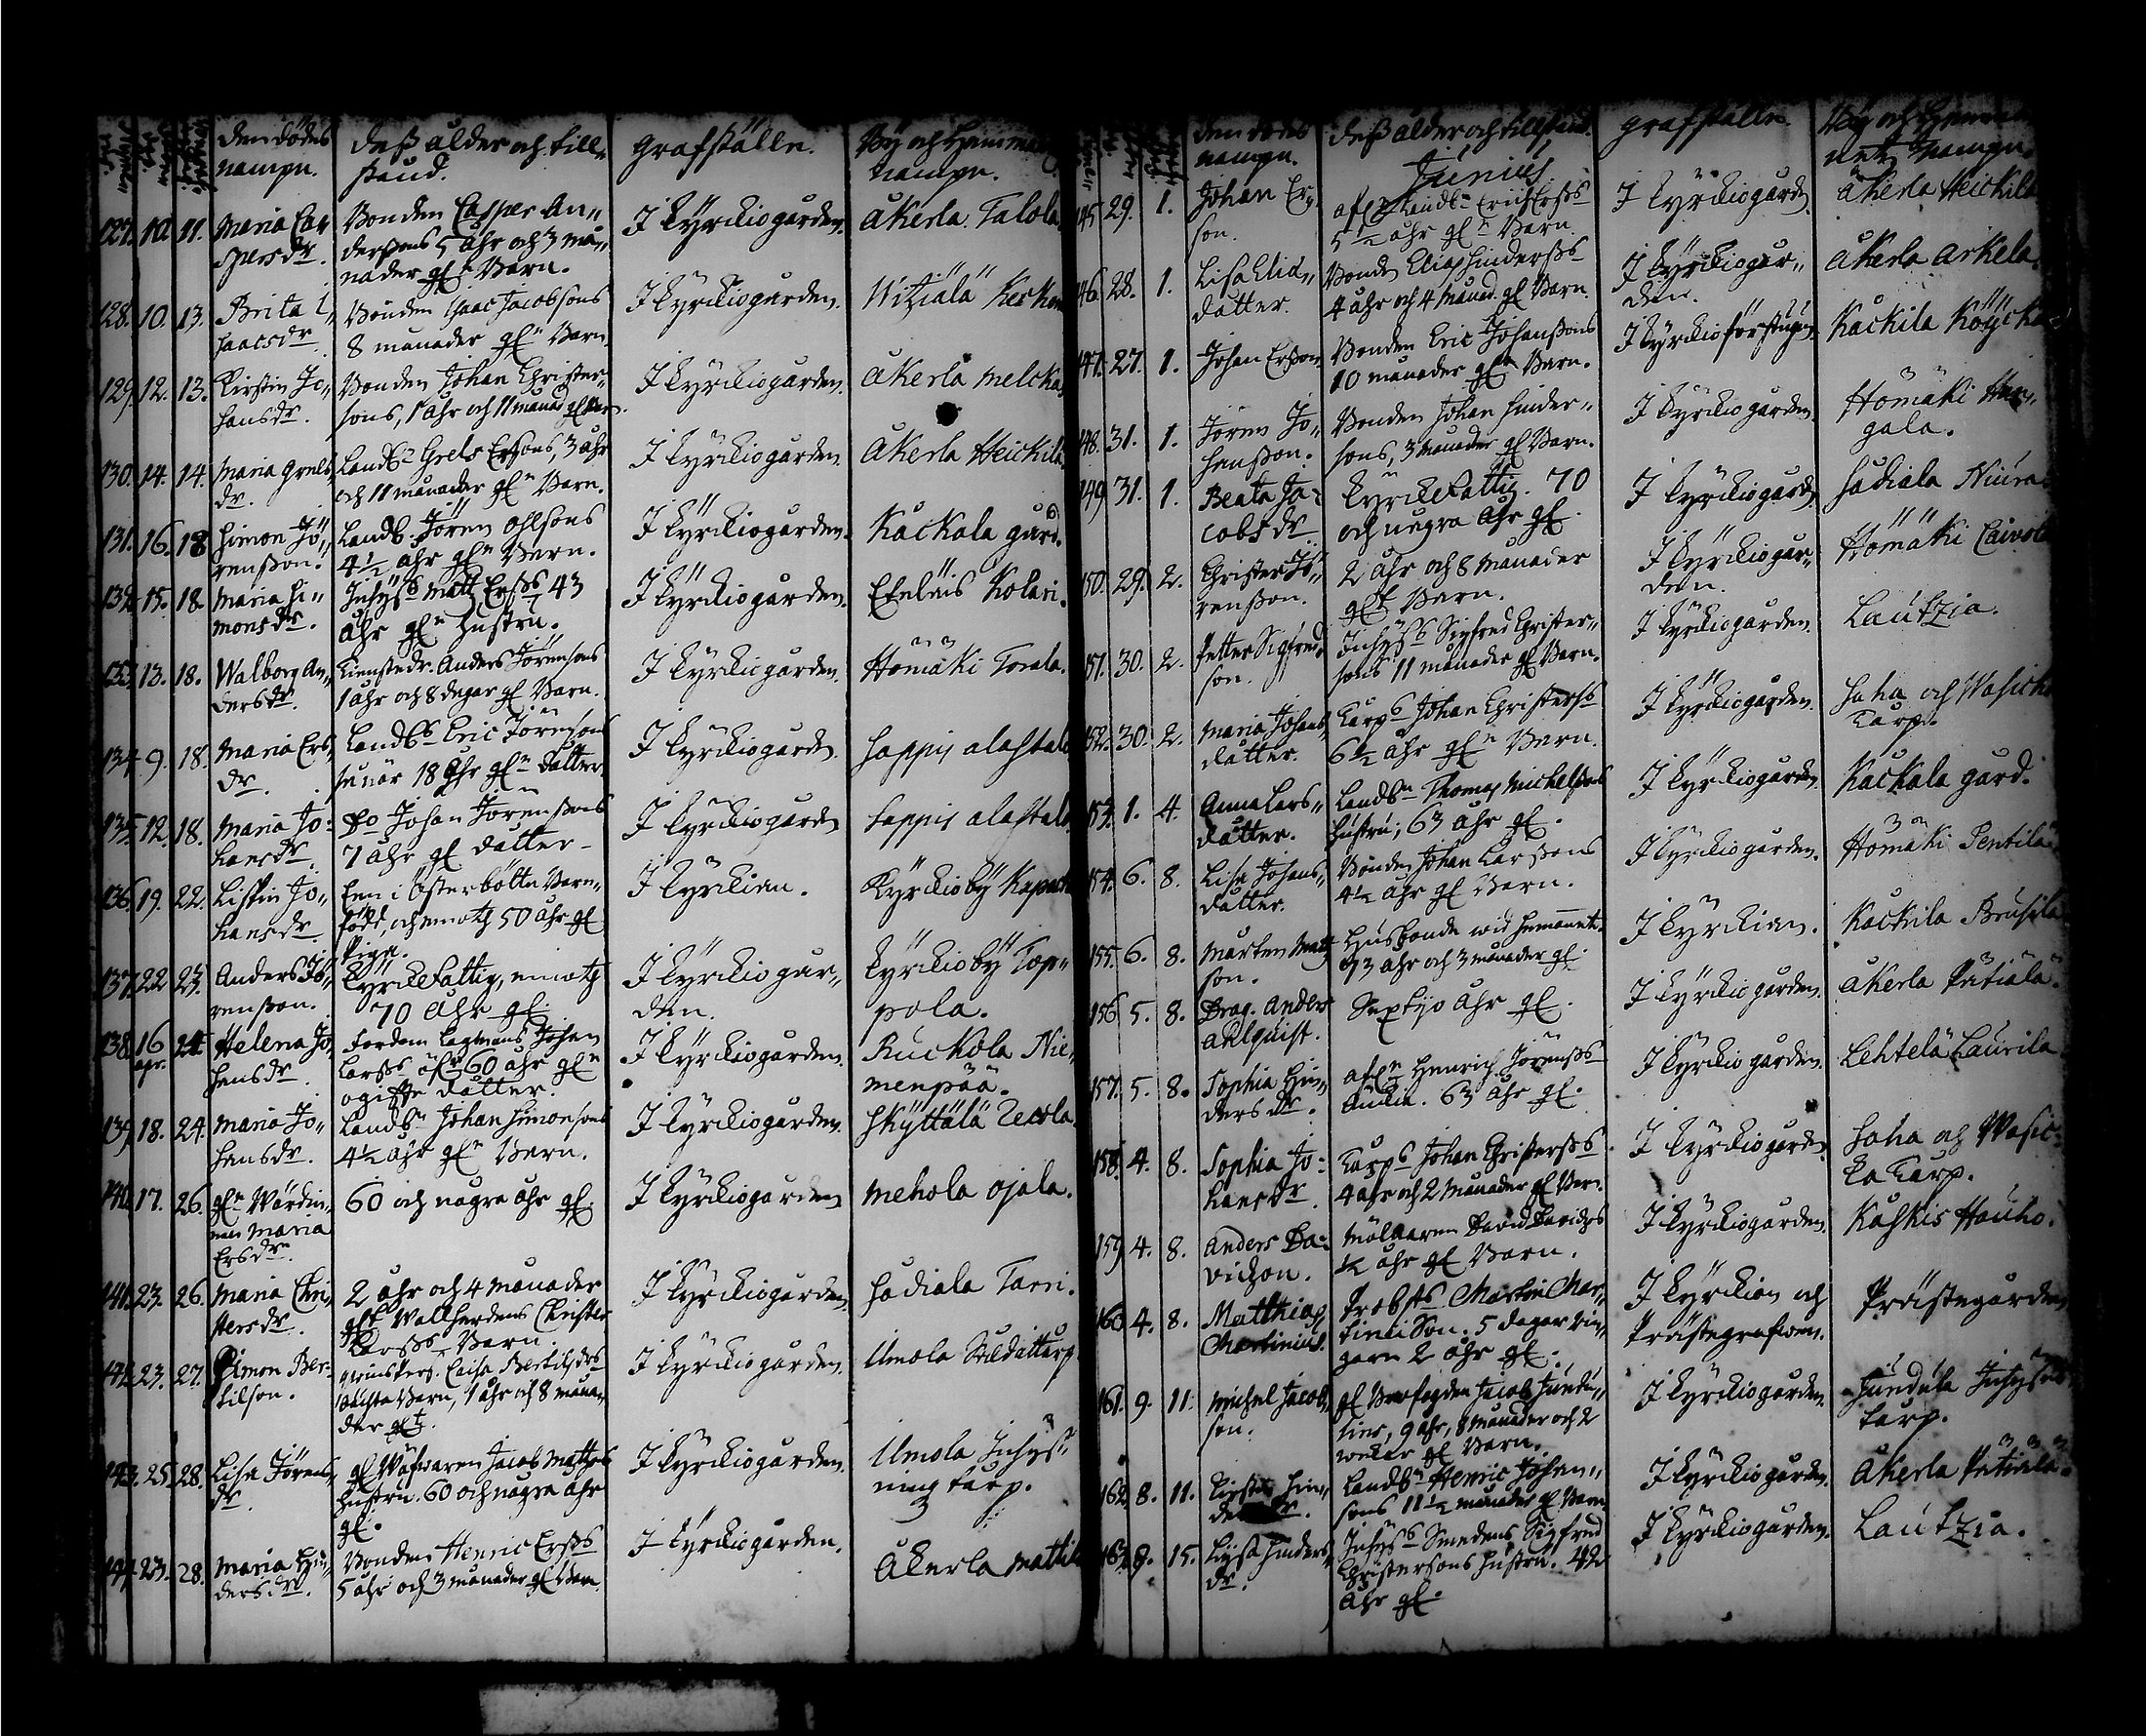 Den dödes
nampn.
Deß ålder och till-
stånd.
Grafställe.
By och Hemmans
nampn.
127. 10. 11. Maria Ca-
spersdr.
Bonden Casper An-
derssons 5 åhr och 3 må-
nader gl. Barn.
I Kyrkiogården.
Åkerla Talola.
128. 10. 13. Brita I-
saacsdr.
Bonden Isaac Jacobsons
8 månader gl. Barn.
I Kyrkiogården.
Witziälä
129. 12. 13. Kirstin Jo-
hansdr.
Bonden Johan Christer-
sons, 1 åhr och 11 månad gl. Barn.
I Kyrkiogården.
Åkerla Melcka
130. 14. 14. Maria Grels
dr.
Landb. Grels Ersons, 3 åhr
och 11 månader gl. Barn.
I Kyrkiogården.
Åkerla Heickilä
131. 16. 18. Simon Jö-
rensson.
Landb. Jören Ohlsons
4½ åhr gl. Barn.
I Kyrkiogården.
Kackala gård.
132. 15. 18. Maria Si-
monsdr.
Inhys. Matts Erss. 43
åhr gl. hustru.
I Kyrkiogården.
Etelais Kolari.
133. 13. 18. Walborg An-
dersdr.
Anders Jörensons
1 åhr och 8 dagar gl. Barn.
I Kyrkiogården.
Hömäki Torala.
134. 9. 18. Maria Ers
dr.
Landb. Eric Jörensons
18 åhr gl. Dåtter.
I Kyrkiogården.
Sappis alastalo
135. 12. 18. Maria Jo-
hansdr.
Do Johan Jörenssons
7 åhr gl. Dåtter.
I Kyrkiogården
Sappis alastalo
136. 19. 22. Lispin Jo-
hansdr.
Een i Österbotten Barn-
född, och emoth 50 åhr gl.
Piga.
I Kyrkian.
Kyrkioby
137. 22. 23. Anders Jö-
rensson.
Kyrckefattig, emoth
70 åhr gl.
I Kyrkiogår-
den.
Kyrkioby Top-
pola.
138. 16 apr. 24. Helena Jo-
hansdr.
Fordom Johan
Larss. 60 åhr gl.
ogiffte dåtter.
I Kyrkiogården.
Ruckola Nie-
menpää.
139. 18. 24. Maria Jo-
hansdr.
Landb. Johan Simonsons
4½ åhr gl. Barn.
I Kyrkiogården.
Skyttälä
140. 17. 26. gl. Wärdin-
nan Maria
Ersdr.
60 och några åhr gl.
I Kyrkiogården
Mehola Ojala.
141. 23. 26. Maria Chri-
stersdr.
2 åhr och 4 månader
gl. Wallherdens Christer
Larss. Barn.
I Kyrkiogården.
Sadiala Tarri.
142. 23. 27. Simon Ber-
tilson.
Caisa Bertilsdrs
Barn, 1 åhr och 8 måna-
der gl.
I Kyrkiogården.
Umola
143. 25. 28. Lisa Jörens
dr.
gl. Wäfwaren Jacob Matts
hustru. 60 och några åhr
gl.
I Kyrkiogården.
Umola Inhys-
ning torp.
144. 23. 28. Maria Hin-
dersdr.
Bonden Henric Erss.
5 åhr och 3 månader gl. Barn
I Kyrkiogården.
Åkerla Mattila
Den dödes
nampn.
Deß ålder och tillstånd.
Grafställe.
By och Hemma-
nets nampn.
Junius.
145. 29. 1. Johan Er-
son.
afl. Landb. Erich Erss.
5½ åhr gl. Barn.
I Kyrkiogård.
Åkerla Heickilä
146. 28. 1. Lisa Elia-
dåtter.
Bonde Elias Hinderss.
4 åhr och 4 månad. gl. Barn.
I Kyrkiogår-
den.
Åkerla Arkela.
147. 27. 1. Johan Erson.
Bonden Eric Johanssons
10 månader gl. Barn.
I Kyrkioförstugun.
Kackila
148. 31. 1. Jören Jo-
hansson.
Bonden Johan Hinder-
sons, 3 månader gl. Barn.
I Kyrkiogården.
Hömäki Har-
gala.
149. 31. 1. Beata Ja-
cobsdr.
Kyrckefattig. 70
och några åhr gl.
I Kyrkiogård.
Sadiala
150. 29. 2. Christer Jö-
rensson.
2 åhr och 8 månader
gl. Barn.
I Kyrkiogår-
den.
Hömäki
151. 30. 2. Petter Sigfreds
son.
Inhyss. Sigfred Christer-
sons 11 månader gl. Barn.
I Kyrkiogården.
Lautzia.
152. 30. 2. Maria Johans
dåtter.
Torp. Johan Christerss.
6½ åhr gl. Barn.
I Kyrkiogården.
Saha och Wasicka
Torp.
153. 1. 4. Anna Lars-
dåtter.
Landb. Thomas Michelsons
hustru, 63 åhr gl.
I Kyrkiogården.
Kackala gård.
154. 6. 8. Lisa Johans-
dåtter.
Bonden Johan Larssons
4½ åhr gl. Barn.
I Kyrkiogården.
Hömäki Pentila.
155. 6. 8. Mårten Matts
son.
Husbonde wid hemmanet.
73 åhr och 3 månader gl.
I Kyrkian.
Kackila Brusila
156. 5. 8. Drag. Anders
Ahlquist.
Sextijo åhr gl.
I Kyrkiogården.
Åkerla Pätiälä.
157. 5. 8. Sophia Hin-
dersdr.
afl. Henrich Jörenss.
Änkia. 63 åhr gl.
I Kyrkiogården.
Lehtelä Laurila
158. 4. 8. Sophia Jo-
hansdr.
Torp. Johan Christerss.
4 åhr och 2 månader gl. Barn.
I Kyrkiogården.
Saha och Wasic-
ka Torp.
159. 4. 8. Anders Da-
vidson.
Mölnaren David Davidss.
½ åhr gl. Barn.
I Kyrkiogården.
Kaskis Hauho.
160. 4. 8. Matthias
Martinius.
Probsts Martin Mar-
tinii Son. 5 dagar rin-
gare 2 åhr gl.
I Kyrkian och
Prästegrafwen.
Prästegården
161. 9. 11. Michel Jacobs
son.
gl. Jacob
9 åhr, 8 månader och 2
wekor gl. Barn.
I Kyrkiogården.
torp.
162. 8. 11. Kirstin Hin-
dersdr.
Landb. Henric Johan-
sons 11½ månader gl. Barn
I Kyrkiogården.
Åkerla Pätiälä.
163. 8. 15. Lisa Hinders
dr.
Inhys. Smedens Sigfred
Christersons hustru. 42
åhr gl.
I Kyrkiogården.
Lautzia.